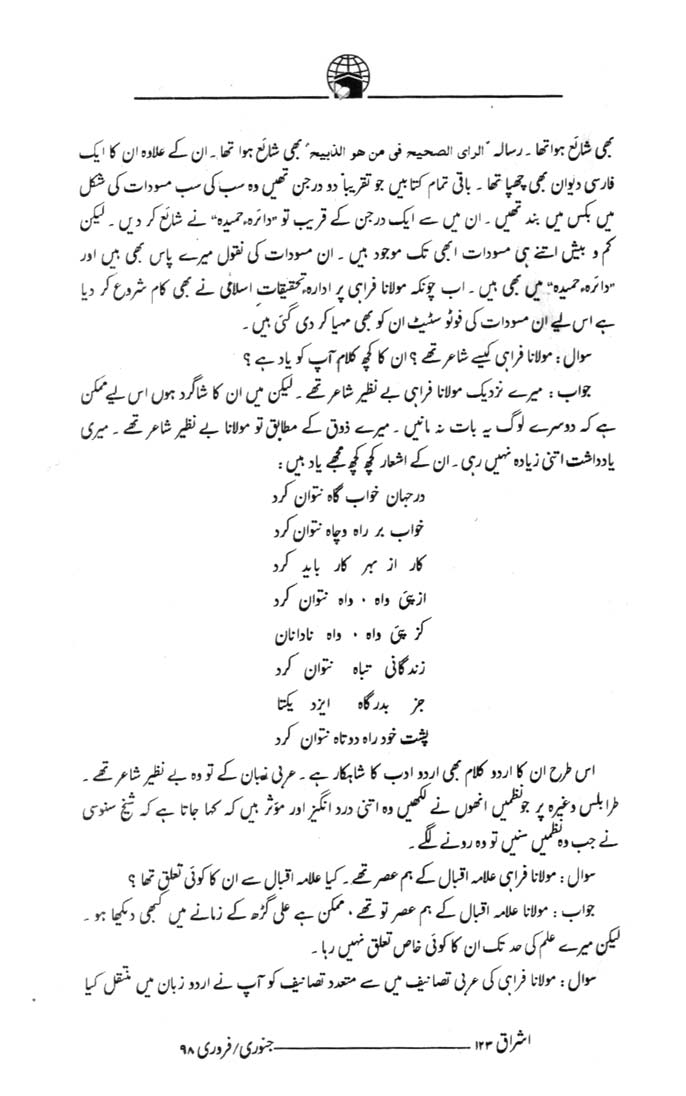 بھی شائع ہوا تھا ۔ رسالہ ”الرای الصحیح فی من ھو الذبیح“ بھی شائع ہوا تھا ۔ ان کے علاوہ ان کا ایک
فارسی دیوان بھی چھپا تھا ۔ باقی تمام کتابیں جو تقریباً دو درجن تھیں وہ سب کی سب مسودات کی شکل
میں بکس میں بند تھیں ۔ ان میں سے ایک درجن کے قریب تو ”دائرہء حمیدہ“ نے شائع کر دیں ۔ لیکن
کم و بیش اتنے ہی مسودات ابھی تک موجود ہیں ۔ ان مسودات کی نقول میرے پاس بھی ہیں اور
”دائرہء حمیدہ“ میں بھی ہیں ۔ اب چونکہ مولانا فراہی پر ادارہء تحقیقاتِ اسلامی نے بھی کام شروع کر دیا
ہے اس لیے ان مسودات کی فوٹو سٹیٹ ان کو بھی مہیا کر دی گئی ہیں ۔
سوال : مولانا فراہی کیسے شاعر تھے ؟ ان کا کچھ کلام آپ کو یاد ہے ؟
جواب : میرے نزدیک مولانا فراہی بے نظیر شاعر تھے ۔ لیکن میں ان کا شاگرد ہوں اس لیے ممکن
ہے کہ دوسرے لوگ یہ بات نہ مانیں ۔ میرے ذوق کے مطابق تو مولانا بے نظیر شاعر تھے ۔ میری
یادداشت اتنی زیادہ نہیں رہی ۔ ان کے اشعار کچھ کچھ مجھے یاد ہیں :
در جہان خواب گاہ نتوان کرد
خواب بر راہ و چاہ نتوان کرد
کار از بہر کار باید کرد
از پئ واہ ، واہ نتوان کرد
کز پئ واہ ، واہ نادانان
زندگانی تباہ نتوان کرد
جز بدرگاہ ایزد یکتا
پشت خود راہ دوتاہ نتوان کرد
اس طرح ان کا اردو کلام بھی اردو ادب کا شاہکار ہے ۔ عربی زبان کے تو وہ بے نظیر شاعر تھے ۔
طرابلس وغیرہ پر جو نظمیں انھوں نے لکھیں وہ اتنی درد انگیز اور مؤثر ہیں کہ کہا جاتا ہے کہ شیخ سنوسی
نے جب وہ نظمیں سنیں تو وہ رونے لگے ۔
سوال : مولانا فراہی علامہ اقبال کے ہم عصر تھے ۔ کیا علامہ اقبال سے ان کا کوئی تعلق تھا ؟
جواب : مولانا علامہ اقبال کے ہم عصر تو تھے ، ممکن ہے علی گڑھ کے زمانے میں کبھی دیکھا ہو ۔
لیکن میرے علم کی حد تک ان کا کوئی خاص تعلق نہیں رہا ۔
سوال : مولانا فراہی کی عربی تصانیف میں سے متعدد تصانیف کو آپ نے اردو زبان میں منتقل کیا
اشراق ۱۲۳ جنوری/فروری ۹۸